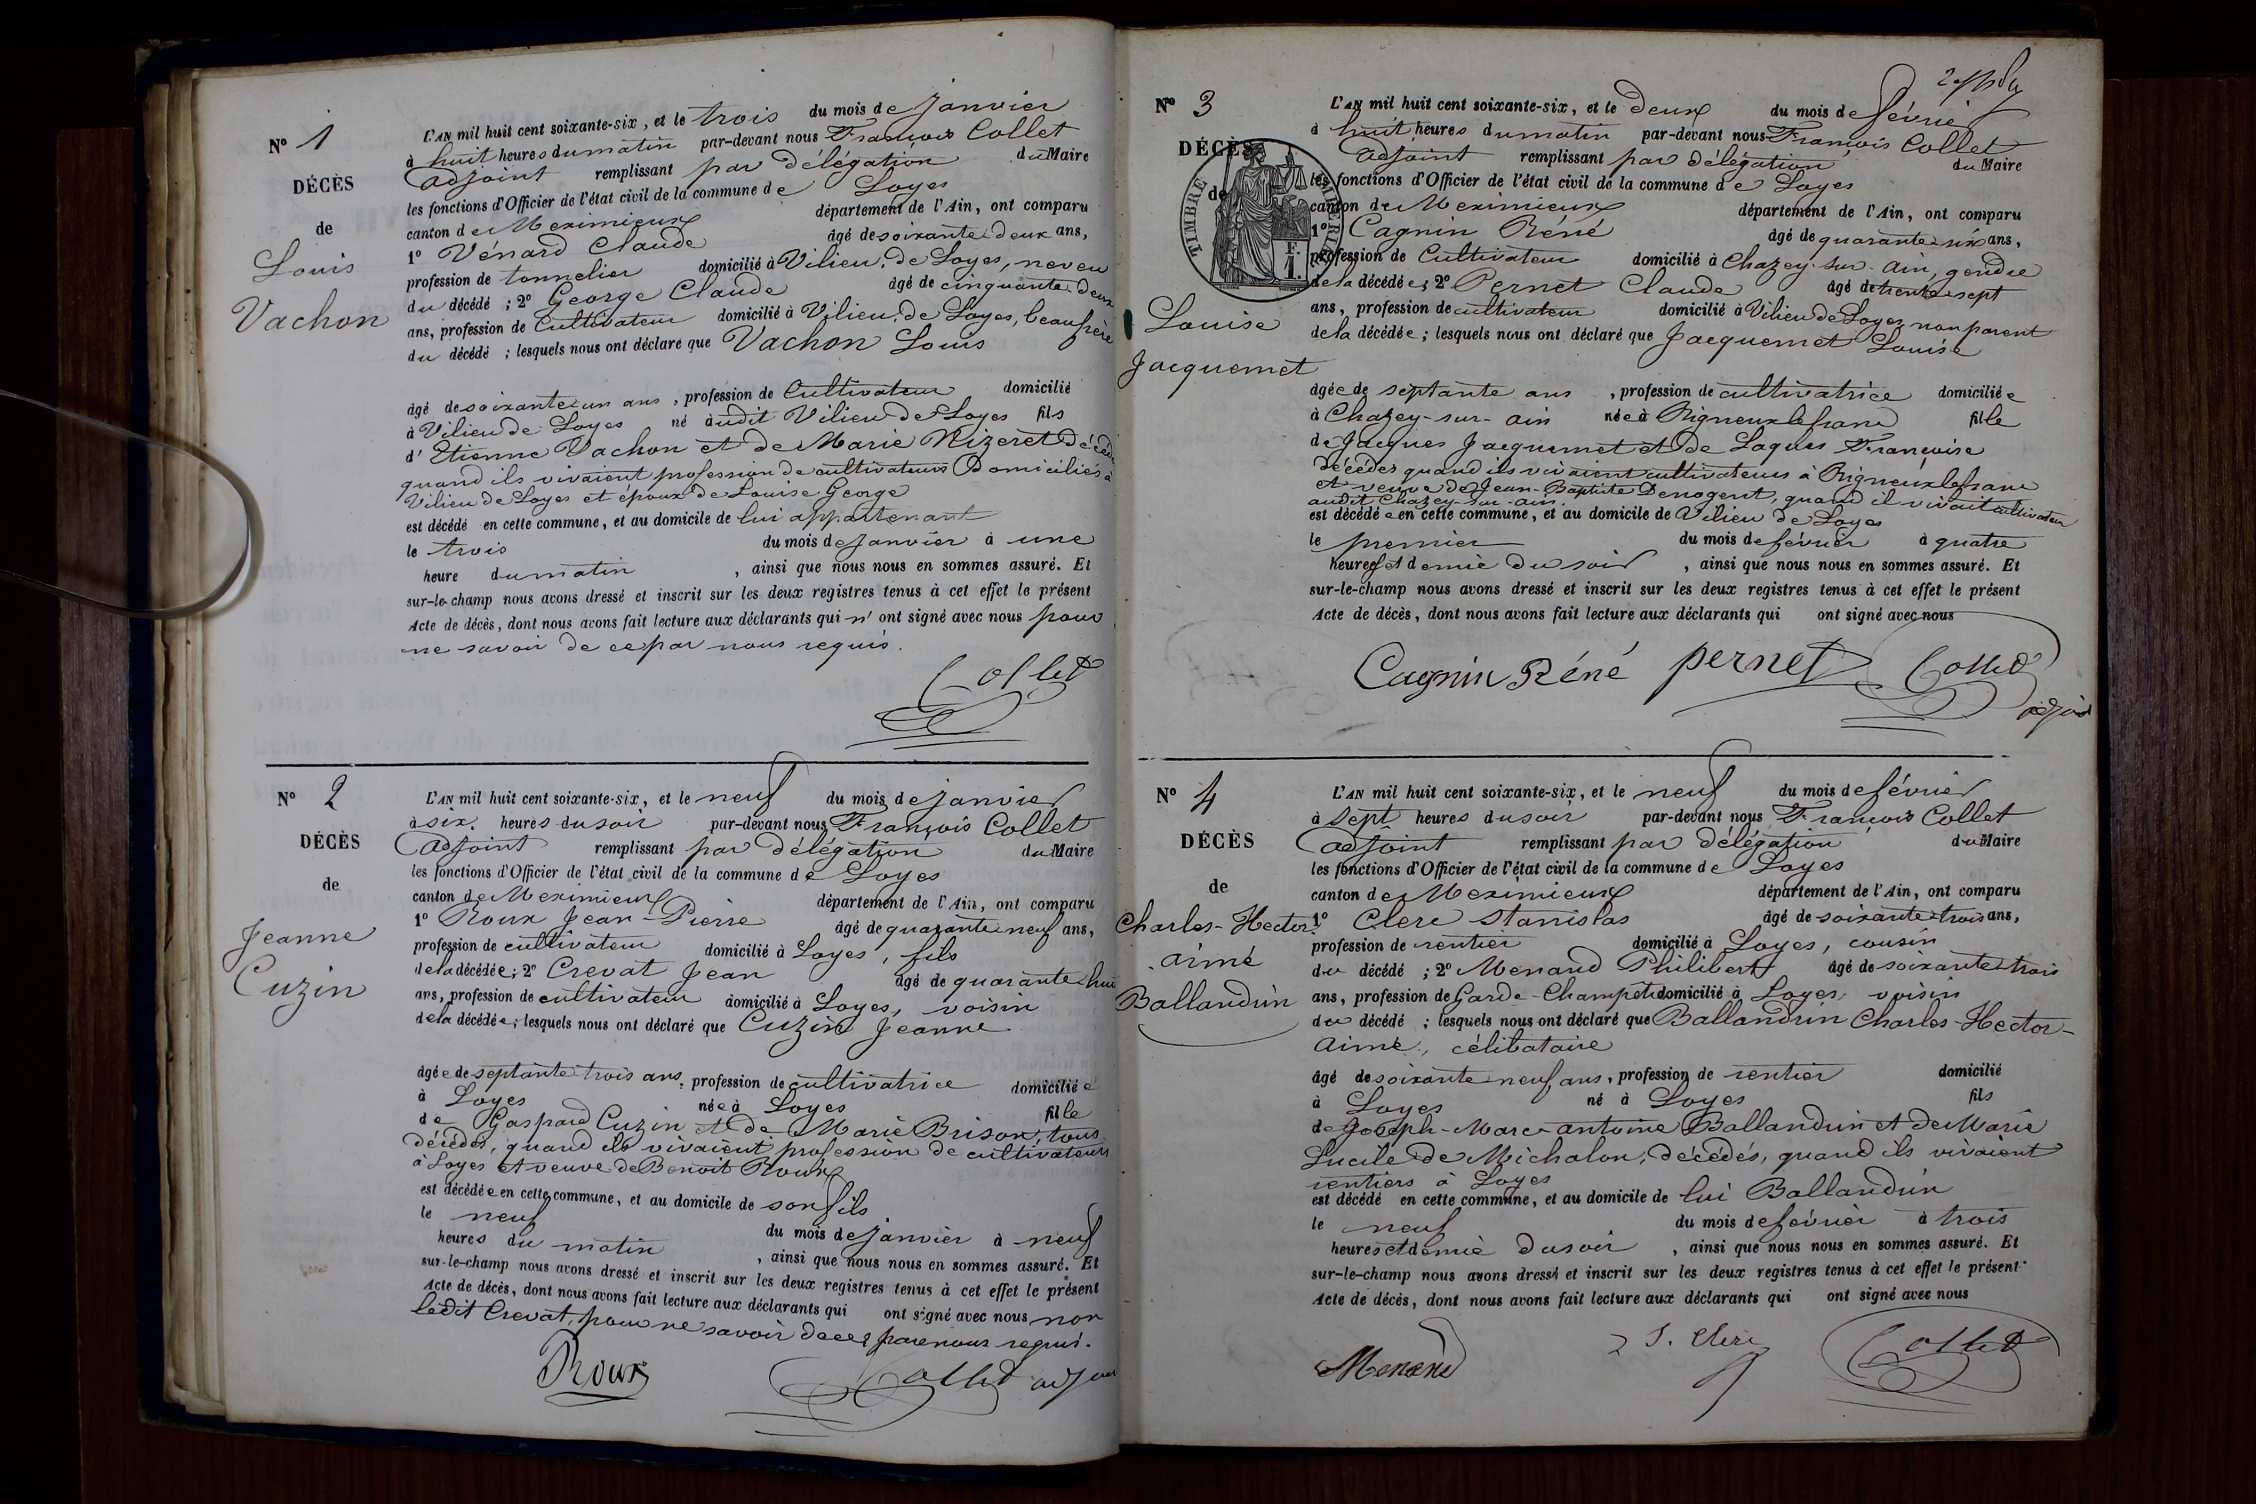 Nº 1
DÉCÈS
de
Louis
Vachon
L'AN mil huit cent soixante-six, et le trois du mois de janvier
à huit heures du matin par-devant nous François Collet
adjoint remplissant par délégation du Maire
les fonctions d'Officier de l'état civil de la commune de Loyes
canton de Meximieux département de l'Ain, ont comparu
1º Vénard Claude âgé de soixante deux ans,
profession de tonnelier domicilié à Vilieu, de Loyes, neveu
du décédé ; 2º George Claude âgé de cinquante deux
ans, profession de cultivateur domicilié à Vilieu, de Loyes, beaufrère
du décédé ; lesquels nous ont déclaré que Vachon Louis
âgé de soixante un ans, profession de cultivateur domicilié
à Vilieu de Loyes né audit Vilieu de Loyes fils
d'Etienne Vachon et de Marie Rizeret décédés
quand ils vivaient profession de cultivateurs domiciliés à
Vilieu de Loyes et époux de Louise George
est décédé en cette commune, et au domicile de lui appartenant
le trois du mois de janvier à une
heure du matin , ainsi que nous nous en sommes assuré. Et
sur-le-champ nous avons dressé et inscrit sur les deux registres tenus à cet effet le présent
Acte de décès, dont nous avons fait lecture aux déclarants qui n'ont signé avec nous pour
ne savoir de ce par nous requis.
Collet
Nº 2
DÉCÈS
de
Jeanne
Cuzin
L'AN mil huit cent soixante-six, et le neuf du mois de janvier
à six heures du soir par-devant nous François Collet
adjoint remplissant par délégation du Maire
les fonctions d'Officier de l'état civil de la commune de Loyes
canton de Meximieux département de l'Ain, ont comparu
1º Roux Jean-Pierre âgé de quarante neuf ans,
profession de cultivateur domicilié à Loyes, fils
de la décédée ; 2º Crevat Jean âgé de quarante huit
ans, profession de cultivateur domicilié à Loyes, voisin
de la décédée ; lesquels nous ont déclaré que Cuzin Jeanne
âgée de septante trois ans, profession de cultivatrice domiciliée
à Loyes née à Loyes fille
de Gaspard Cuzin et de Marie Brison, tous
décédés, quand ils vivaient profession de cultivateurs
à Loyes et veuve de Benoit Roux
est décédée en cette commune, et au domicile de son fils
le neuf du mois de janvier à neuf
heures du matin , ainsi que nous nous en sommes assuré. Et
sur-le-champ nous avons dressé et inscrit sur les deux registres tenus à cet effet le présent
Acte de décès, dont nous avons fait lecture aux déclarants qui ont signé avec nous, non
ledit Crevat, pour ne savoir de ce par nous requis.
Roux Collet adjoint
Nº 3
DÉCÈS
de
TIMBRE IMPÉRIAL
F.
1.
Louise
Jacquemet
L'AN mil huit cent soixante-six, et le deux du mois de février
à huit heures du matin par-devant nous François Collet
adjoint remplissant par délégation du Maire
les fonctions d'Officier de l'état civil de la commune de Loyes
canton de Meximieux département de l'Ain, ont comparu
1º Cagnin Réné âgé de quarante six ans,
profession de Cultivateur domicilié à Chazey-sur-ain, gendre
de la décédée ; 2º Pernet Claude âgé de trente sept
ans, profession de cultivateur domicilié à Vilieu de Loyes non parent
de la décédée ; lesquels nous ont déclaré que Jacquemet Louise
âgée de septante ans , profession de cultivatrice domiciliée
à Chazey-sur-ain née à Rigneux le franc fille
de Jacques Jacquemet et de Laques Françoise
décédés quand ils vivaient cultivateurs à Rigneux le franc
et veuve de Jean-Baptiste Denogent, quand il vivait cultivateur
audit Chazey-sur-ain
est décédée en cette commune, et au domicile de Vilieu de Loyes
le premier du mois de février à quatre
heures et demie du soir , ainsi que nous nous en sommes assuré. Et
sur-le-champ nous avons dressé et inscrit sur les deux registres tenus à cet effet le présent
Acte de décès, dont nous avons fait lecture aux déclarants qui ont signé avec nous
Cagnin Réné pernet Collet
adjoint
Nº 4
DÉCÈS
de
Charles-Hector
aimé
Ballandrin
L'AN mil huit cent soixante-six, et le neuf du mois de février
à sept heures du soir par-devant nous François Collet
adjoint remplissant par délégation du Maire
les fonctions d'Officier de l'état civil de la commune de Loyes
canton de Meximieux département de l'Ain, ont comparu
1º Clerc Stanislas âgé de soixante trois ans,
profession de rentier domicilié à Loyes, cousin
du décédé ; 2º Menand Philibert âgé de soixante trois
ans, profession de Garde-Champêtre domicilié à Loyes, voisin
du décédé ; lesquels nous ont déclaré que Ballandrin Charles-Hector-
aimé, célibataire
âgé de soixante neuf ans, profession de rentier domicilié
à Loyes né à Loyes fils
de Joseph-Marc-antoine Ballandrin et de Marie
Lucile de Michalon, décédés, quand ils vivaient
rentiers à Loyes
est décédé en cette commune, et au domicile de lui Ballandrin
le neuf du mois de février à trois
heures et demie du soir , ainsi que nous nous en sommes assuré. Et
sur-le-champ nous avons dressé et inscrit sur les deux registres tenus à cet effet le présent
Acte de décès, dont nous avons fait lecture aux déclarants qui ont signé avec nous
Menand S. Clerc Collet